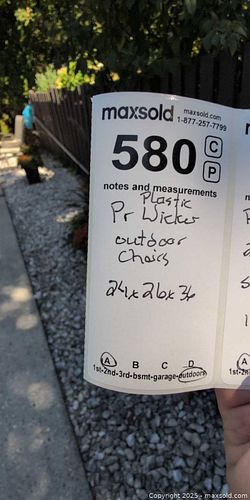 maxsold maxsold.com
1-877-257-7799
580 C
P
notes and measurements
Plastic
Pr Wicker
outdoor
Chairs
24x26x36
A B C D
1st-2nd-3rd-bsmt-garage-outdoors
A
1st-2n
Copyright 2025 - maxsold.com